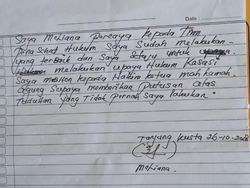 Date
Saya Meliana Percaya Kepada Tim
Penasehat Hukum Saya Sudah melakukan
yang terbaik dan Saya Setuju untuk
melakukan upaya Hukum Kasasi
Saya mohon kepada Hakim ketua mahkamah
agung Supaya memberikan Putusan atas
Tuduhan yang Tidak Pernah Saya lakukan.
Tanjung Gusta 26-10-2018
Meliana.